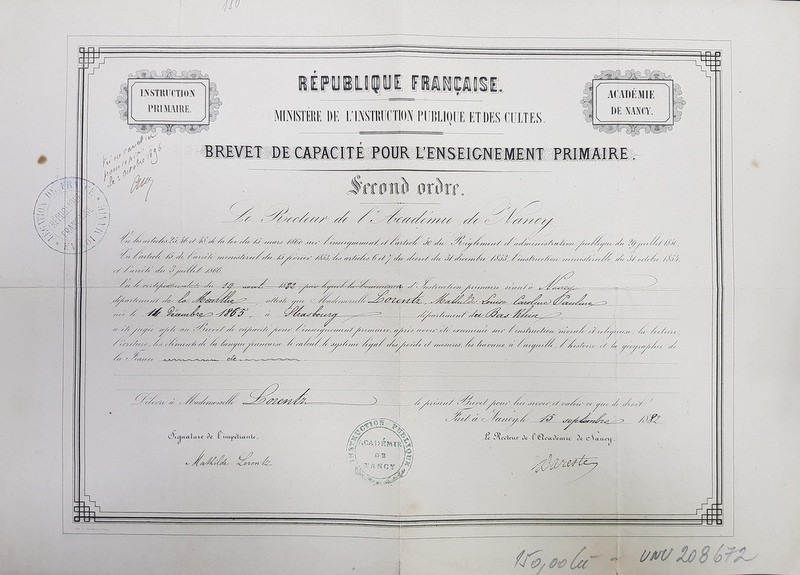 INSTRUCTION
PRIMAIRE.
RÉPUBLIQUE FRANÇAISE.
ACADÉMIE
DE NANCY.
MINISTÈRE DE L'INSTRUCTION PUBLIQUE ET DES CULTES
BREVET DE CAPACITÉ POUR L'ENSEIGNEMENT PRIMAIRE.
Second ordre.
Le Recteur de l'Académie de Nancy
Vu les articles 25, 46 et 48 de la loi du 15 mars 1850 sur l'enseignement et l'article 50 du Règlement d'administration publique du 29 juillet 1850,
Vu l'article 15 de l'arrêté ministériel du 15 février 1853, les articles 6 et 7 du décret du 31 décembre 1853, l'instruction ministérielle du 31 octobre 1854,
et l'arrêté du 3 juillet 1866.
Vu le certificat en date du 19 août 1882 par lequel la Commission d'Instruction primaire séant à Nancy
département de la Meurthe atteste que Mademoiselle Lorentz, Mathilde Louise Caroline Pauline
née le 14 Décembre 1865, à Strasbourg département du Bas Rhin
a été jugée apte au Brevet de capacité pour l'enseignement primaire après avoir été examinée sur l'instruction morale et religieuse, la lecture
l'écriture, les éléments de la langue française, le calcul, le système légal des poids et mesures, les travaux à l'aiguille, l'histoire et la géographie de
la France
Délivre à Mademoiselle Lorentz le présent Brevet pour lui servir et valoir ce que de droit.
Fait à Nancy le 15 septembre 1882
Signature de l'impétrante.
Le Recteur de l'Académie de Nancy.
Mathilde Lorentz
Dareste
INSTRUCTION PUBLIQUE
ACADÉMIE
DE
NANCY
150,00 lei - UNU 208672